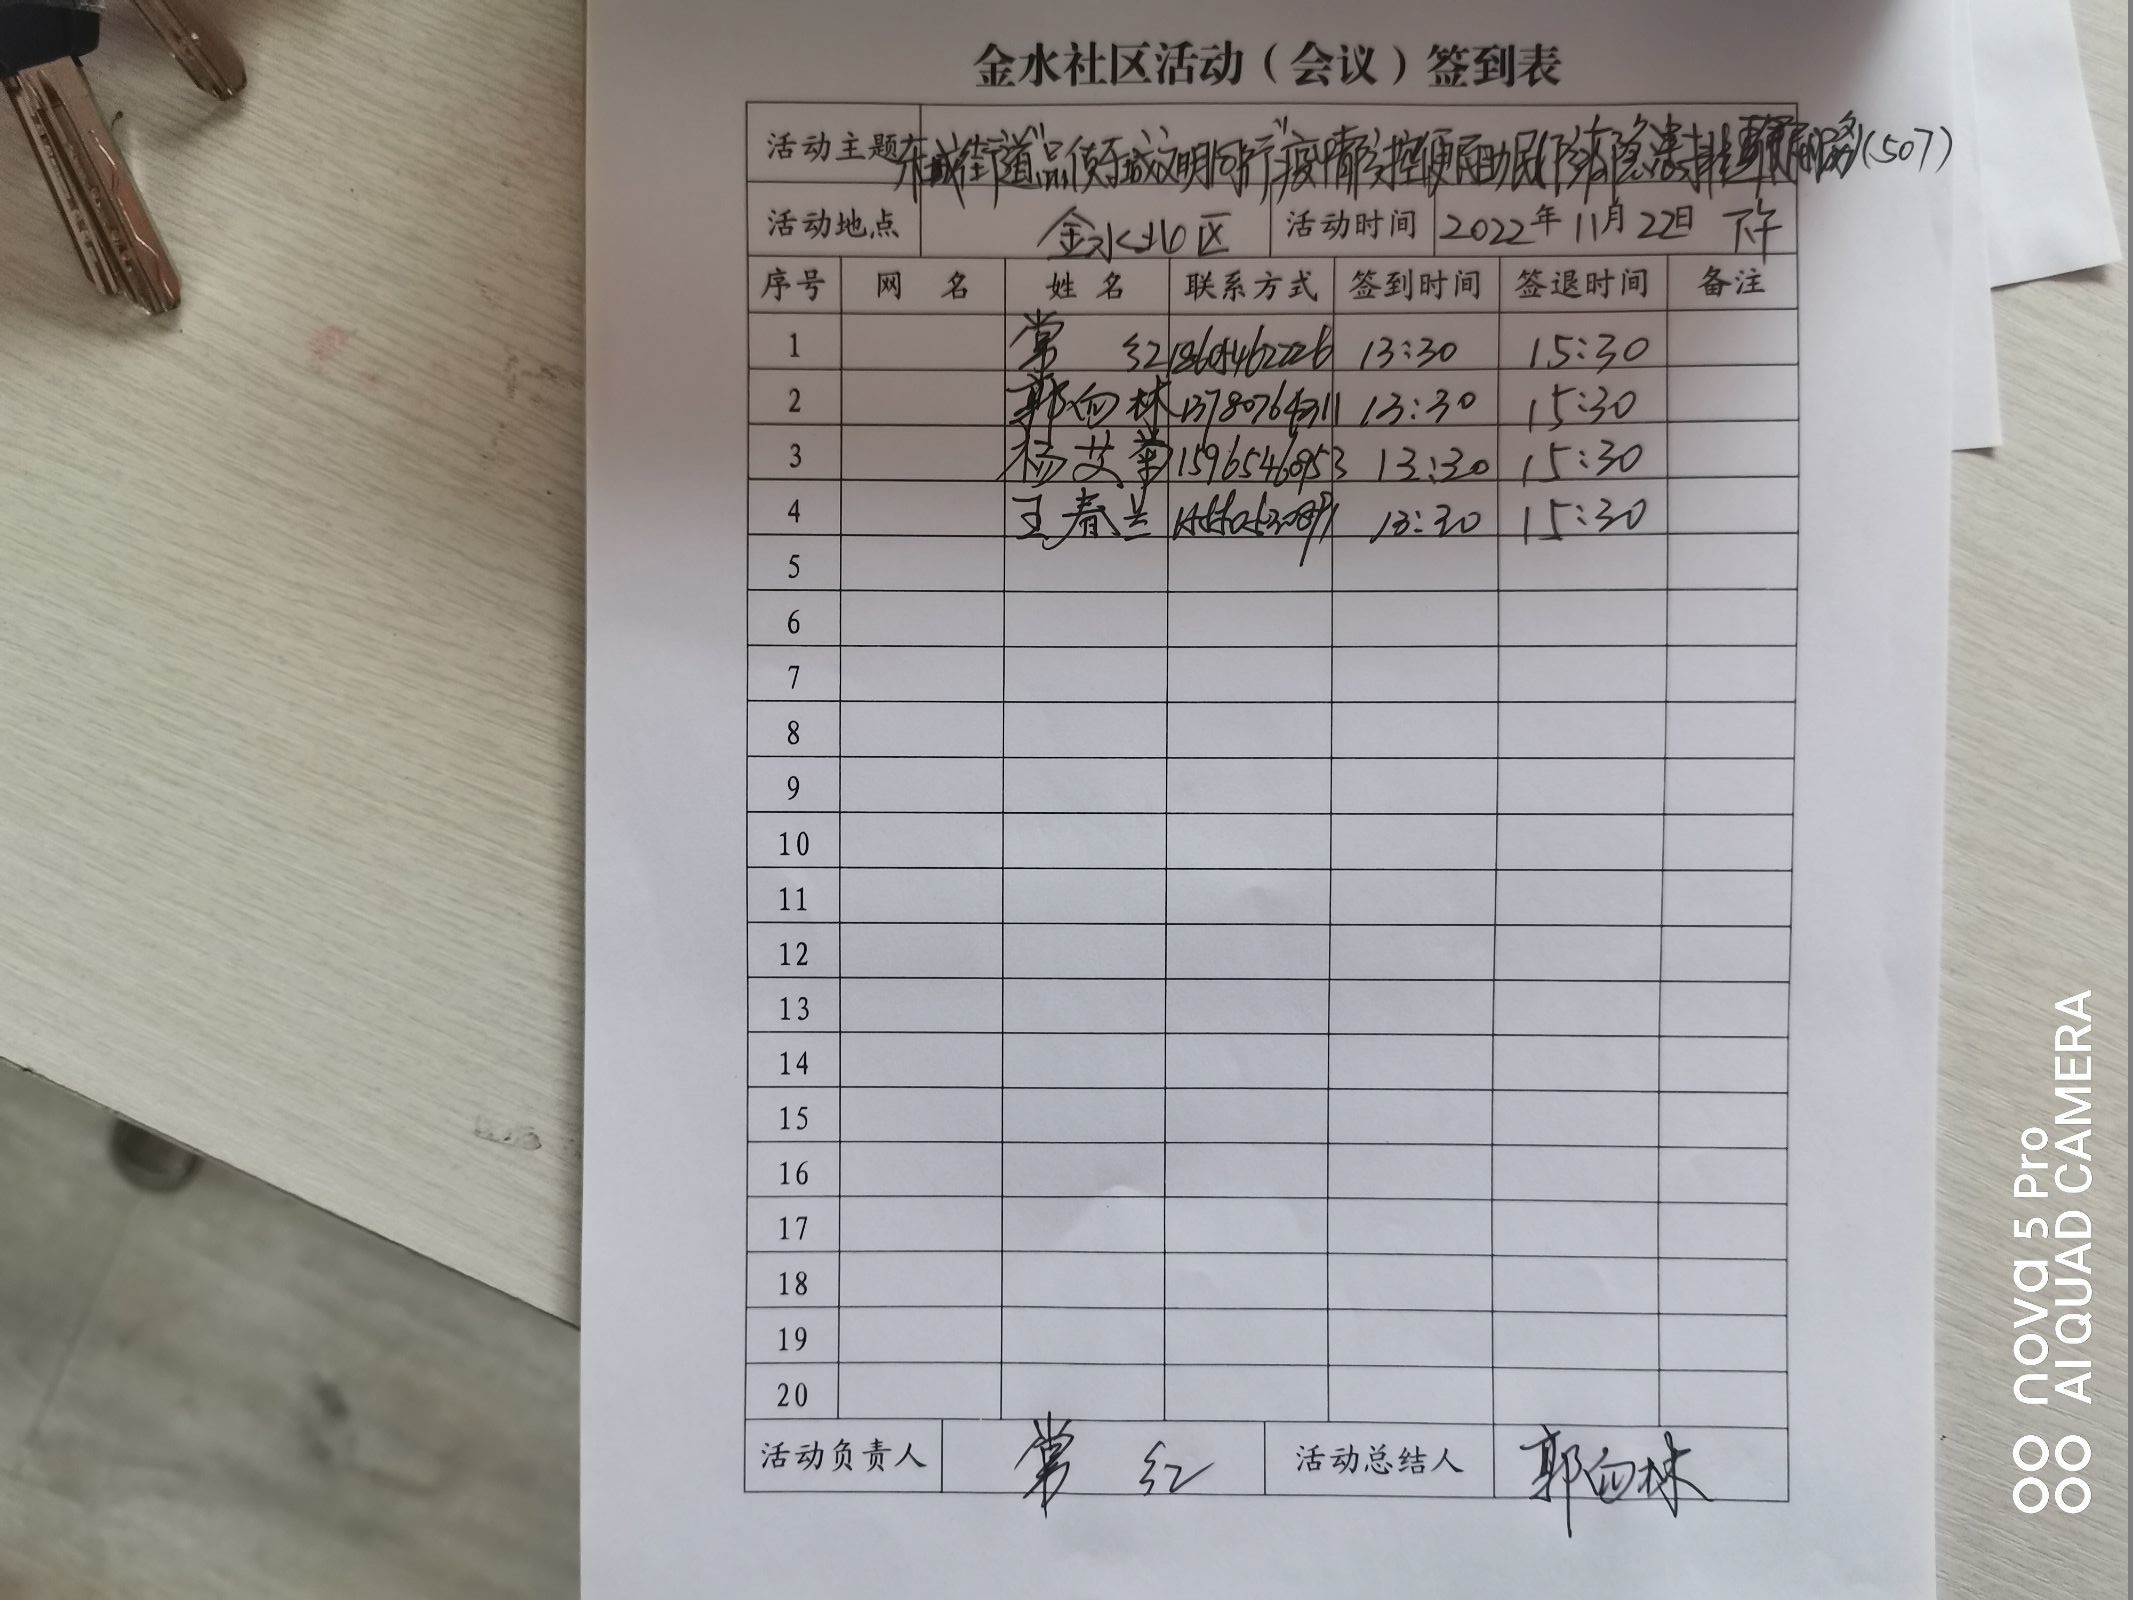 金水社区活动(会议)签到表
活动主题 东城街道"品质东城文明同行"疫情防控便民助民 隐患排 服务(507)
活动地点 金水社区 活动时间 2022年11月22日 下午
序号 网 名 姓 名 联系方式 签到时间 签退时间 备注
1 常 红 13:30 15:30
2 郭向林 13:30 15:30
3 杨艾菊 13:30 15:30
4 王春兰 13:30 15:30
5
6
7
8
9
10
11
12
13
14
15
16
17
18
19
20
活动负责人 常 红 活动总结人 郭向林
nova 5 Pro
AI QUAD CAMERA